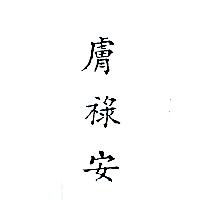 膚祿安